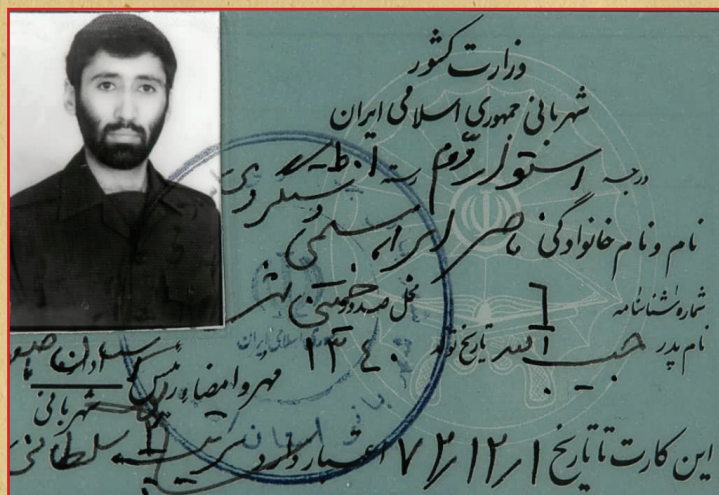 وزارت کشور
شهربانی جمهوری اسلامی ایران
درجه استوار دوم رسته انتظامی
نام و نام خانوادگی ناصر ابراهیمی
شماره شناسنامه ٦ محل صدور خمینی شهر
نام پدر حبیب الله تاریخ تولد ۱۳۴۰
مهر و امضاء رئیس شهربانی
این کارت تا تاریخ ۷۲/۱۲/۱ اعتبار دارد